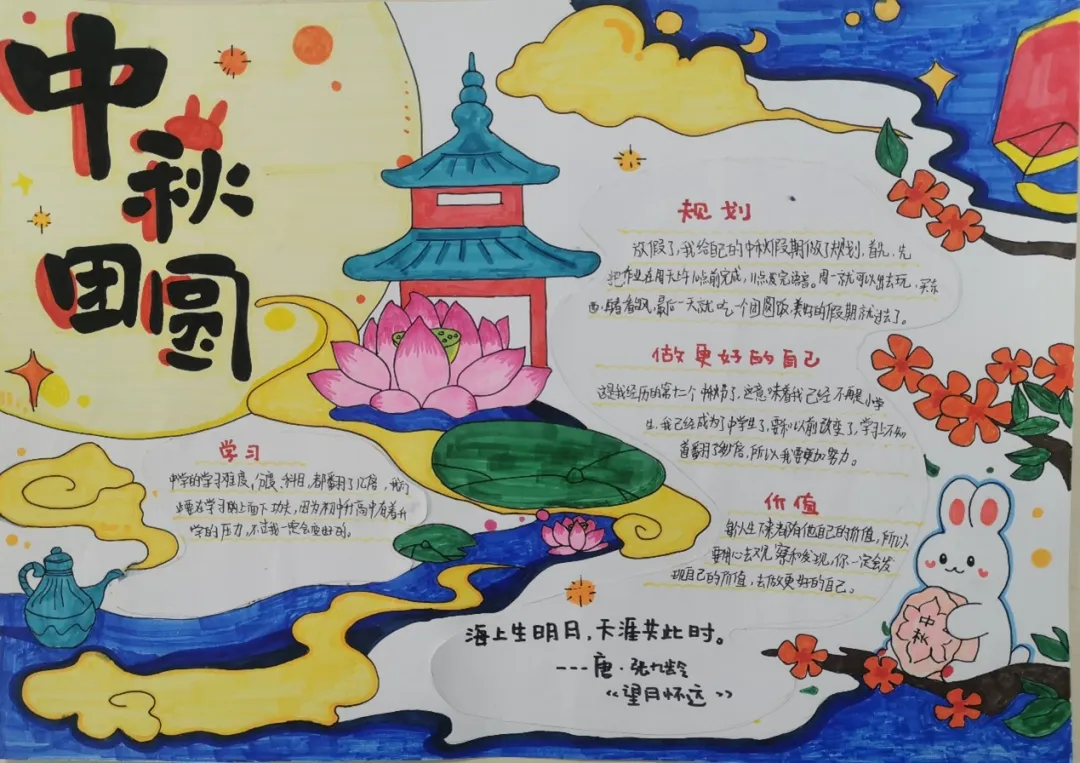 中秋
团圆
规划
放假了,我给自己的中秋假期做了规划,首先,先
把作业在周天上午10点前完成,11点发完语音。周一就可以出去玩,买东
西,最后一天就吃一个团圆饭,美好的假期就过去了。
做更好的自己
这是我经历的第十二个中秋节了,这意味着我已经不再是小学
生,我已经成为了中学生了,要和以前改变了,学习上不知
道翻了几倍,所以我需更加努力。
学习
中学的学习难度,科目,都翻了几倍,我们
要在学习的上面下功夫,因为初中升高中有着升
学的压力,不过我一定会更好的。
价值
每个人生下来都有他自己的价值,所以
要用心去观察和发现,你一定会发
现自己的价值,去做更好的自己。
海上生明月,天涯共此时。
---唐·张九龄
《望月怀远》
中秋